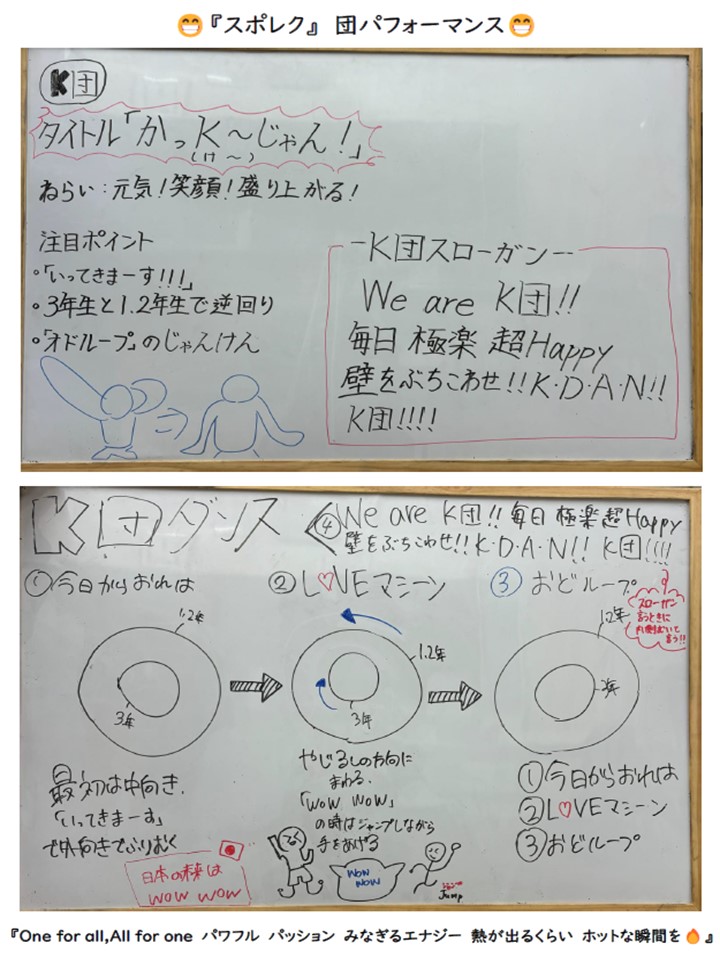 😁『スポレク』 団パフォーマンス😁
K団
タイトル「かっK〜じゃん！」
(け〜)
ねらい：元気！笑顔！盛り上がる！
注目ポイント
・「いってきまーす!!!」
・3年生と1.2年生で逆回り
・「オドループ」のじゃんけん
K団スローガン
We are K団!!
毎日 極楽 超Happy
壁をぶちこわせ!!K・D・A・N!!
K団!!!!
K団ダンス
④We are K団!! 毎日 極楽 超Happy
壁をぶちこわせ!!K・D・A・N!! K団!!!!
①今日からおれは
1.2年
3年
最初は中向き.
「いってきまーす」
で外向きでふりおく
日本の未来は
WOW WOW
②L♡VEマシーン
1.2年
3年
やじるしの方向に
まわる.
「WOW WOW」
の時はジャンプしながら
手をあげる
WOW
WOW
Jump
③おどループ
スローガン
言うときに
言う!!
1.2年
①今日からおれは
②L♡VEマシーン
③おどループ
『One for all,All for one パワフル パッション みなぎるエナジー 熱が出るくらい ホットな瞬間を🔥』